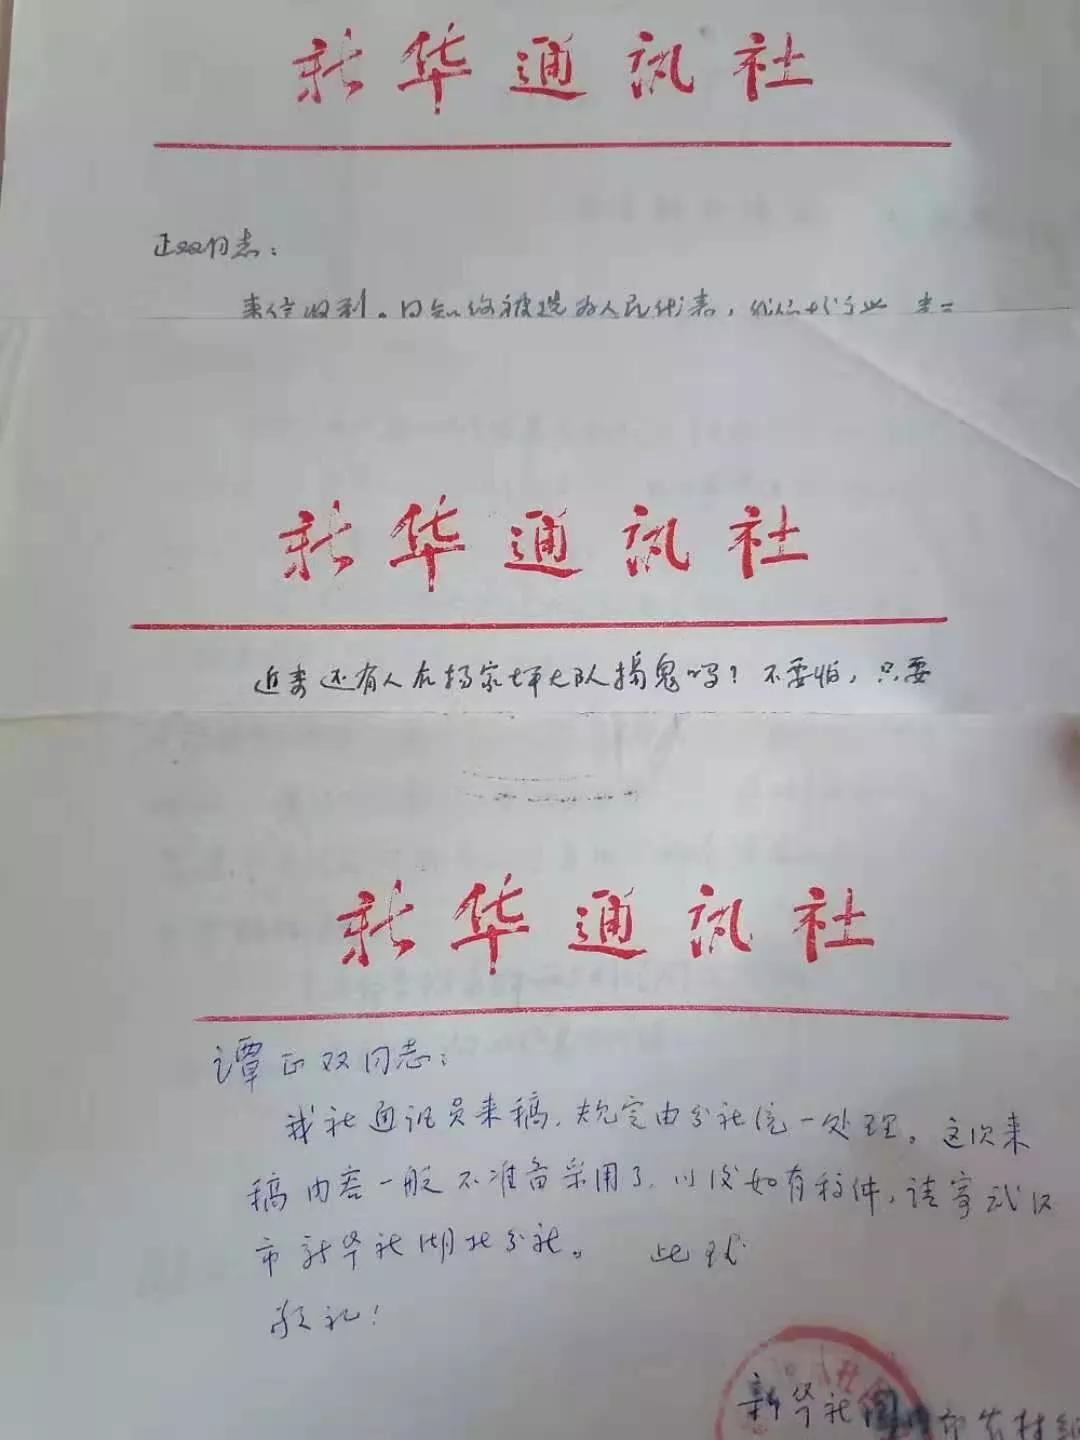 新华通讯社
正双同志:
来信收到。得知你被选为人民代表,
新华通讯社
近来还有人在杨家坪大队搞鬼吗?不要怕,只要
新华通讯社
谭正双同志:
我社通讯员来稿,规定由分社统一处理。这次来
稿内容一般不准备采用了,以后如有稿件,请寄武汉
市新华社湖北分社。 此致
敬礼!
新华社国内部农村组